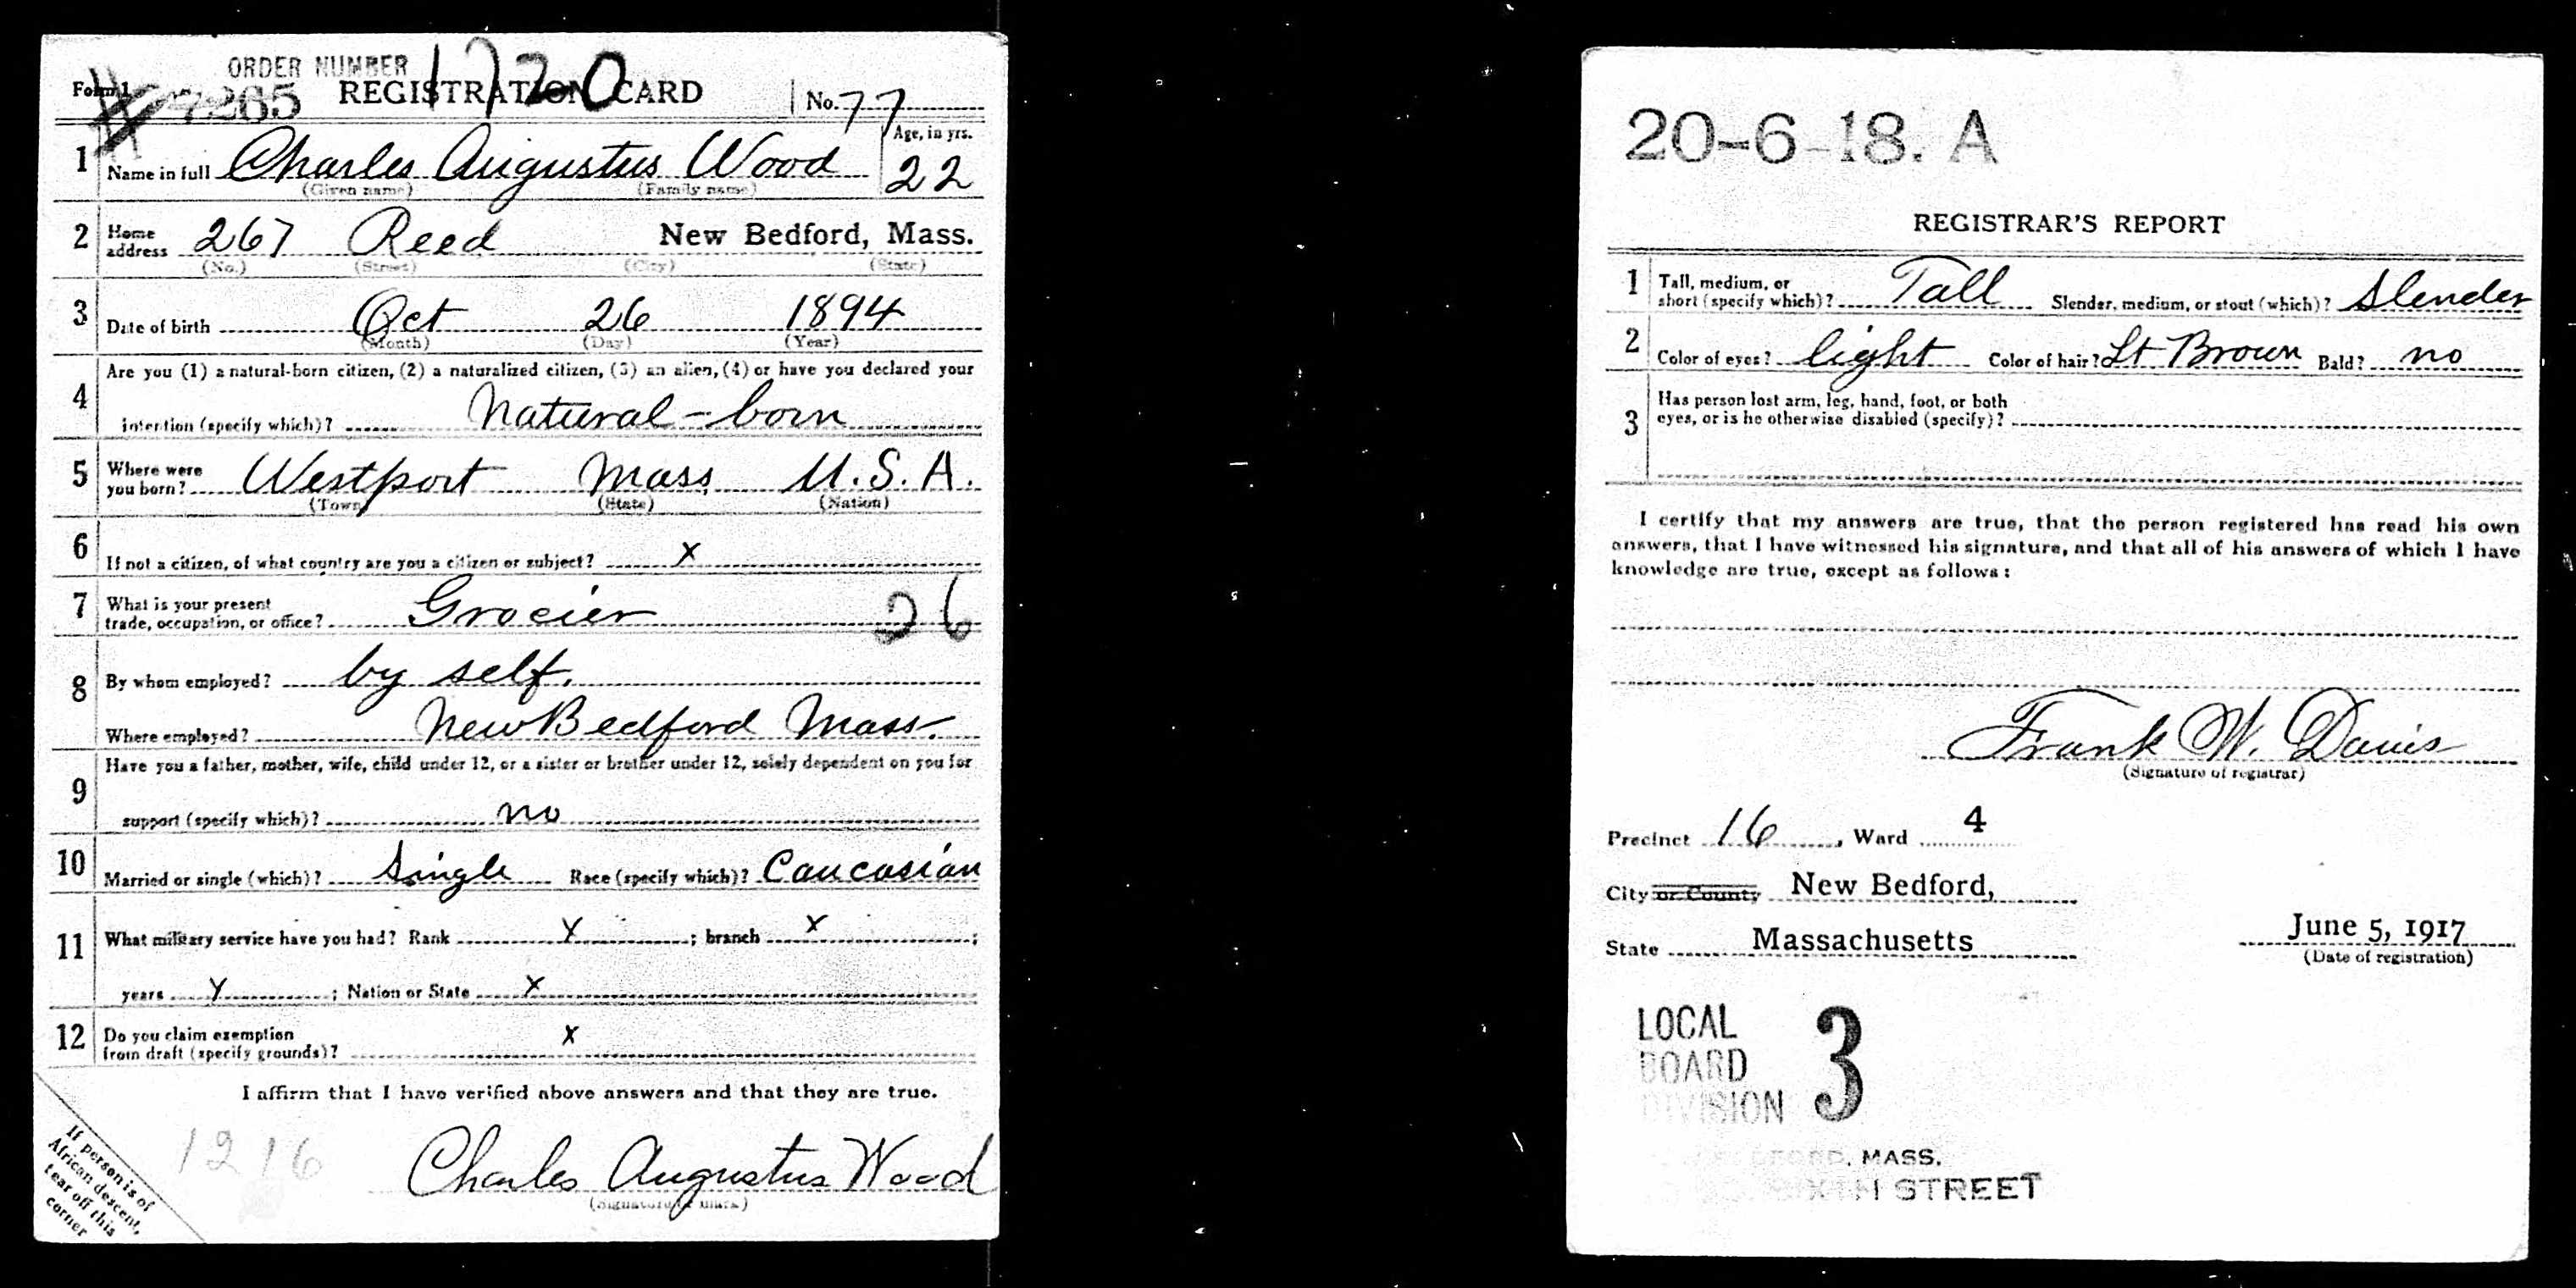 ORDER NUMBER
Form 1 7265 REGISTRATION CARD 1720 No. 77
1 Name in full Charles Augustus Wood Age, in yrs. 22
(Given name) (Family name)
2 Home address 267 Reed New Bedford, Mass.
(No.) (Street) (City) (State)
3 Date of birth Oct 26 1894
(Month) (Day) (Year)
4 Are you (1) a natural-born citizen, (2) a naturalized citizen, (3) an alien, (4) or have you declared your
intention (specify which)? Natural-born
5 Where were you born? Westport Mass U.S.A.
(Town) (State) (Nation)
6 If not a citizen, of what country are you a citizen or subject? x
7 What is your present
trade, occupation, or office? Grocier 26
8 By whom employed? by self.
Where employed? New Bedford Mass.
9 Have you a father, mother, wife, child under 12, or a sister or brother under 12, solely dependent on you for
support (specify which)? no
10 Married or single (which)? Single Race (specify which)? Caucasian
11 What military service have you had? Rank x ; branch x ;
years x ; Nation or State x
12 Do you claim exemption
from draft (specify grounds)? x
I affirm that I have verified above answers and that they are true.
1216
Charles Augustus Wood
(Signature or mark)
If person is of
African descent,
tear off this
corner
20-6-18. A
REGISTRAR'S REPORT
1 Tall, medium, or
short (specify which)? Tall Slender, medium, or stout (which)? Slender
2 Color of eyes? light Color of hair? Lt Brown Bald? no
3 Has person lost arm, leg, hand, foot, or both
eyes, or is he otherwise disabled (specify)?
I certify that my answers are true, that the person registered has read his own
answers, that I have witnessed his signature, and that all of his answers of which I have
knowledge are true, except as follows:
Frank W. Davis
(Signature of registrar)
Precinct 16, Ward 4
City or County New Bedford,
State Massachusetts
June 5, 1917
(Date of registration)
LOCAL
BOARD
DIVISION 3
MASS.
SIXTH STREET